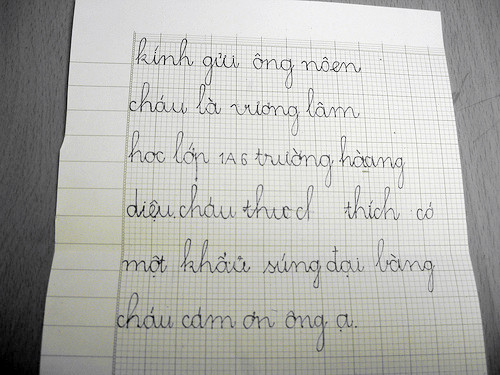 kính gửi ông nôen
cháu là vương lâm
học lớp 1A6 trường hoàng
diệu. cháu thưcd thích có
một khẩu súng đại bàng
cháu cám ơn ông ạ.